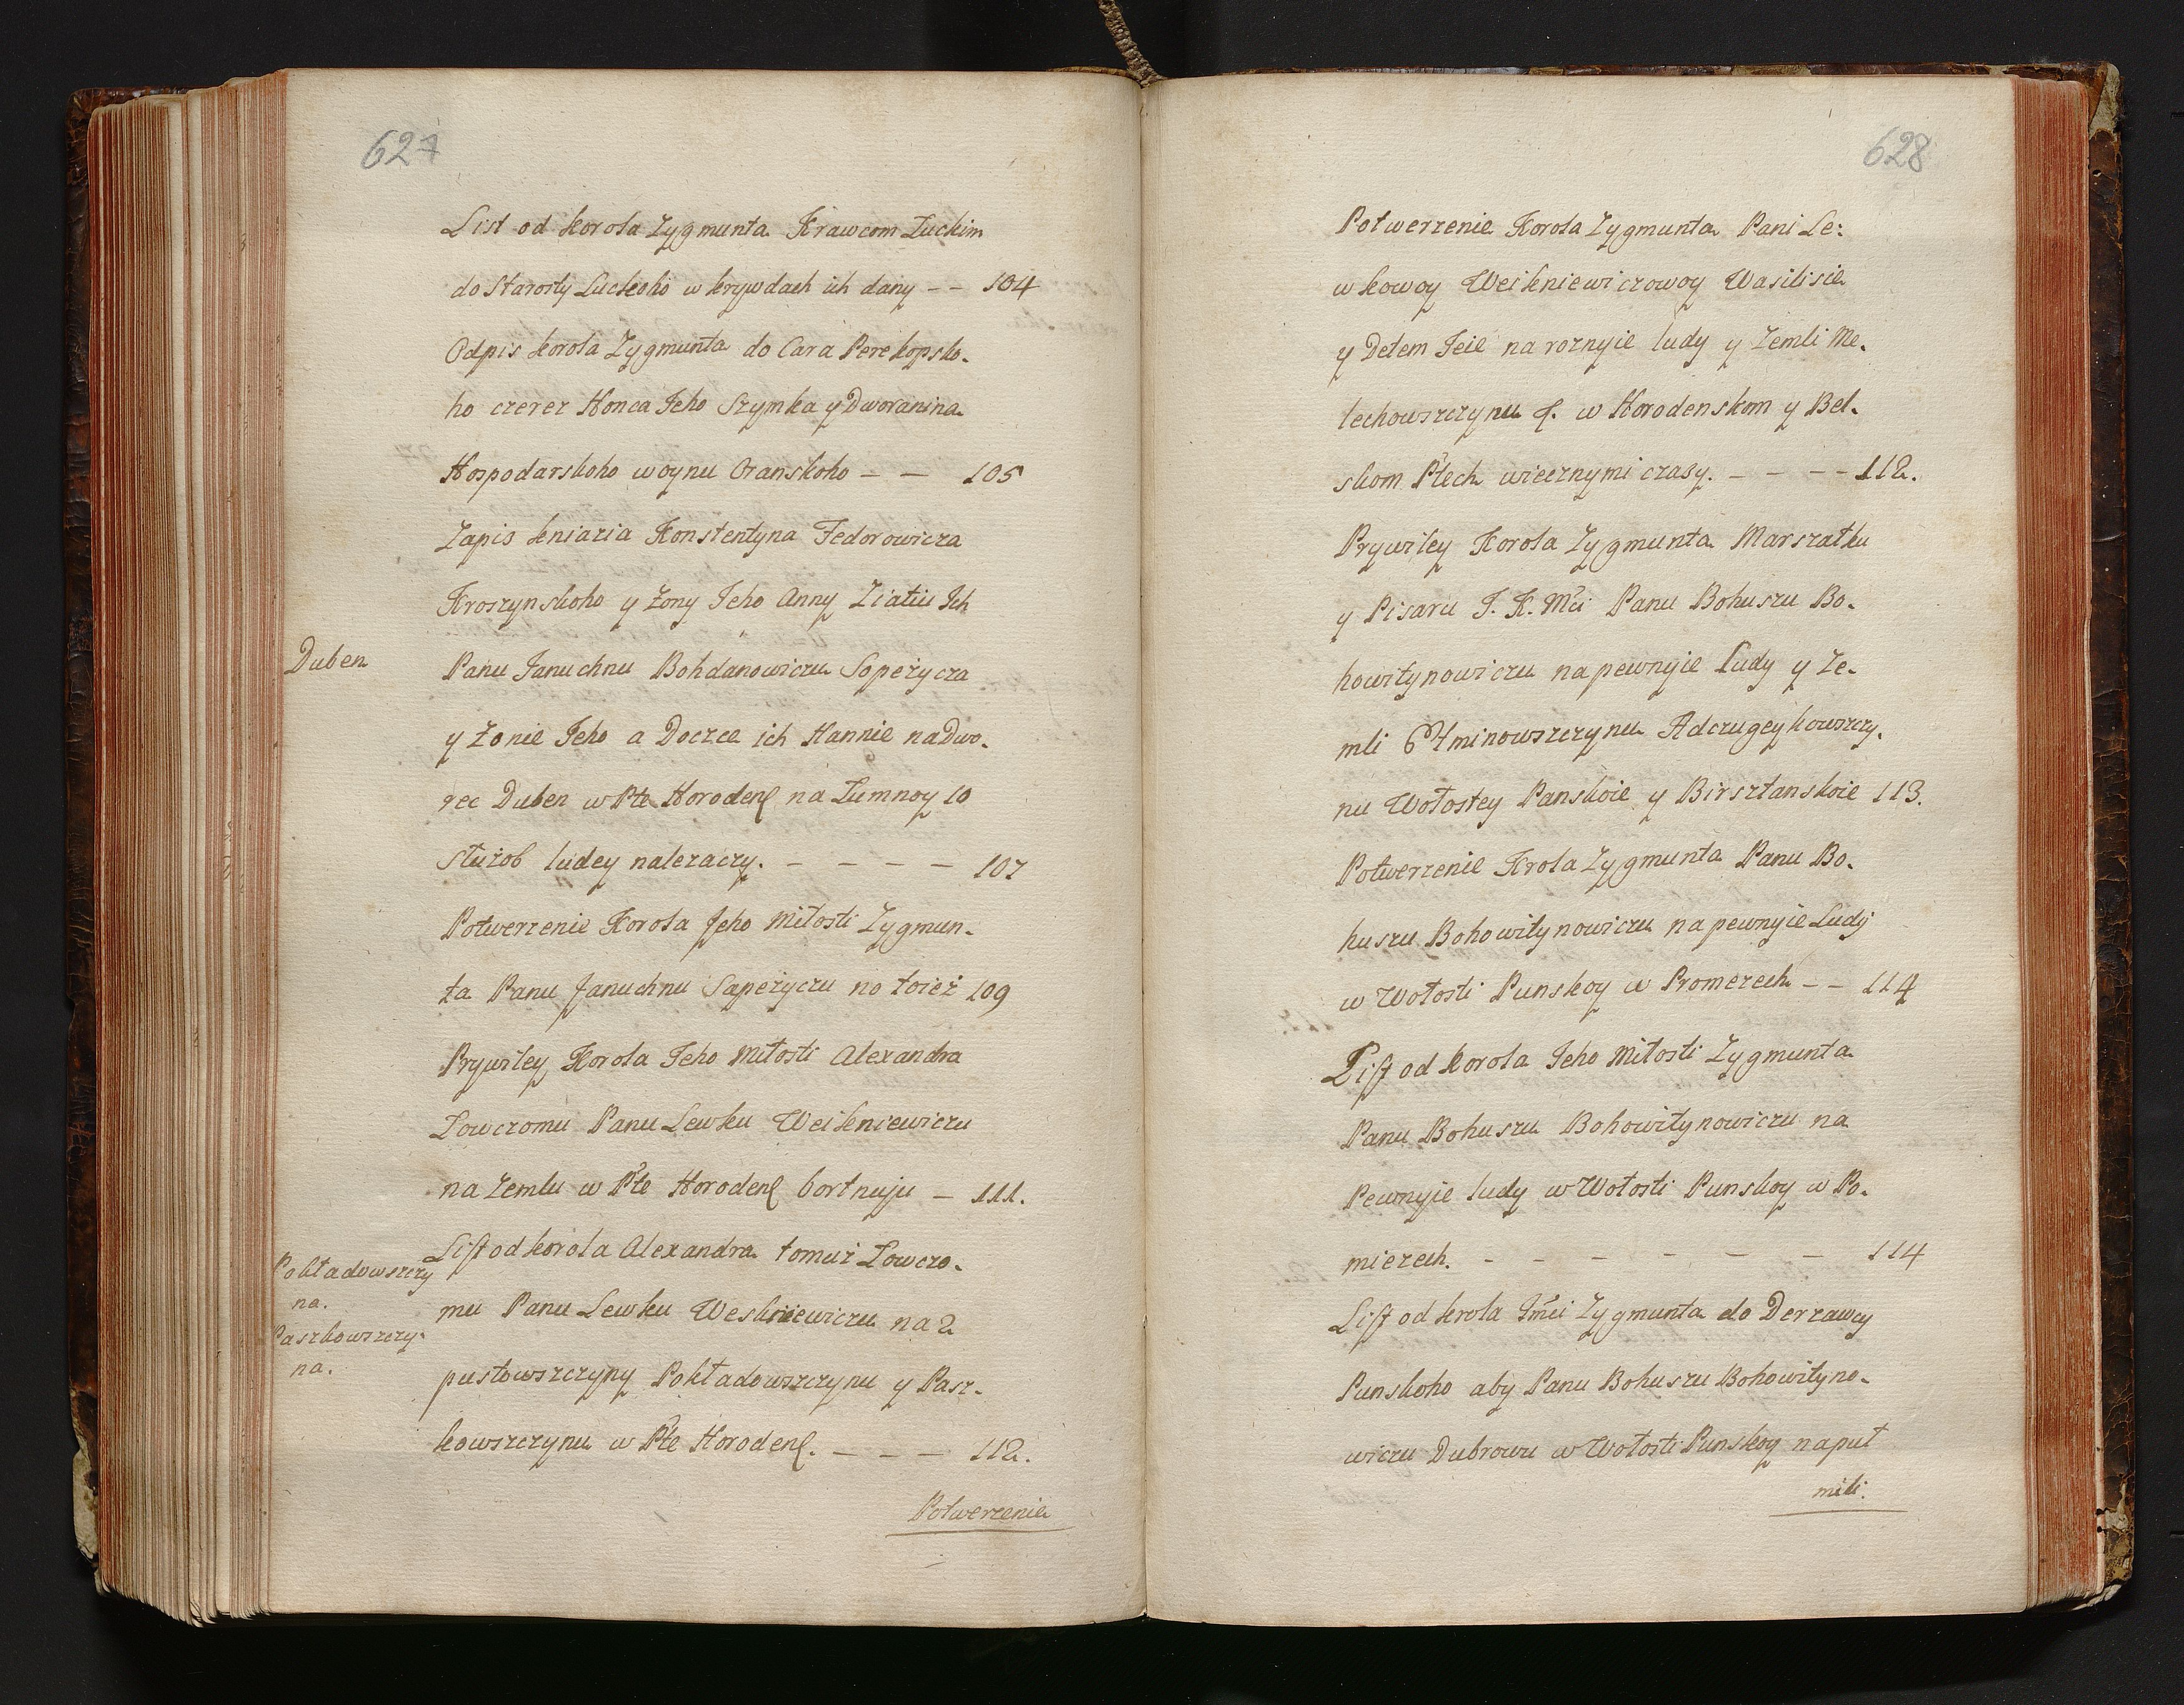 627
List od korola Zygmunta Krawcom Łuckim
do Starosty Luckoho w krywdach ich dany – – 104
Odpis korola Zygmunta do Cara Perekopsko-
ho czerez Honca Jeho Szymka y Dworanina
Hospodarskoho woynu Oranskoho – – 105
Zapis kniazia Konstentyna Fedorowicza
Kroszynskoho y żony Jeho Anny Ziatiu Jch
Duben
Panu Januchnu Bohdanowiczu Sopeżycza
y Żonie Jeho a Doczce ich Hannie na Dwo-
rec Duben w Pte Horodens na Łumnoy 10
służob ludey nalezaczy. – – – – 107
Potwerzenie Korola Jeho Miłosti Zygmun-
ta Panu Januchnu Sapeżyczu no toież 109
Prywiley Korola Jeho Miłosti Alexandra
Łowczomu Panu Lewku Weikniewiczu
na Zemlu w Pte Horodens bortnuju – 111.
List od korola Alexandra tomuż Łowczo-
Pokładowszczy
na.
mu Panu Lewku Weskniewiczu na 2
Paszkowszczy-
na.
pustowszczyny Pokładowszczynu y Pasz-
kowszczynu w Pte Horodens. – – – 112.
Potwerzenie
628
Potwerzenie Korola Zygmunta Pani Le:
wkowoy Weikniewiczowoy Wasilisie
y Detem Jeie na roznyie ludy y Zemli Me-
lechowszczynu &. w Horodenskom y Bel-
skom Ptech wiecznymi czasy. – – – – 112.
Prywiley Korola Zygmunta Marszałku
y Pisaru J. K. Mci Panu Bohuszu Bo-
howitynowiczu na pewnyie Ludy y Ze-
mli Adczugeykowszczy-
nu Wołostey Panskoie y Birsztanskoie 113.
Potwerzenie Krola Zygmunta Panu Bo-
huszu Bohowitynowiczu na pewnyie Ludy
w Wołosti Punskoy w Promerech – – 114
List od korola Jeho Miłosti Zygmunta
Panu Bohuszu Bohowitynowiczu na
Pewnyie ludy w Wołosti Punskoy w Po-
mierech. – – – – – – 114
List od krola Jmci Zygmunta do Derzawcy
Punskoho aby Panu Bohuszu Bohowityno-
wiczu Dubrowu w Wołosti Punskoy na puł
mili.